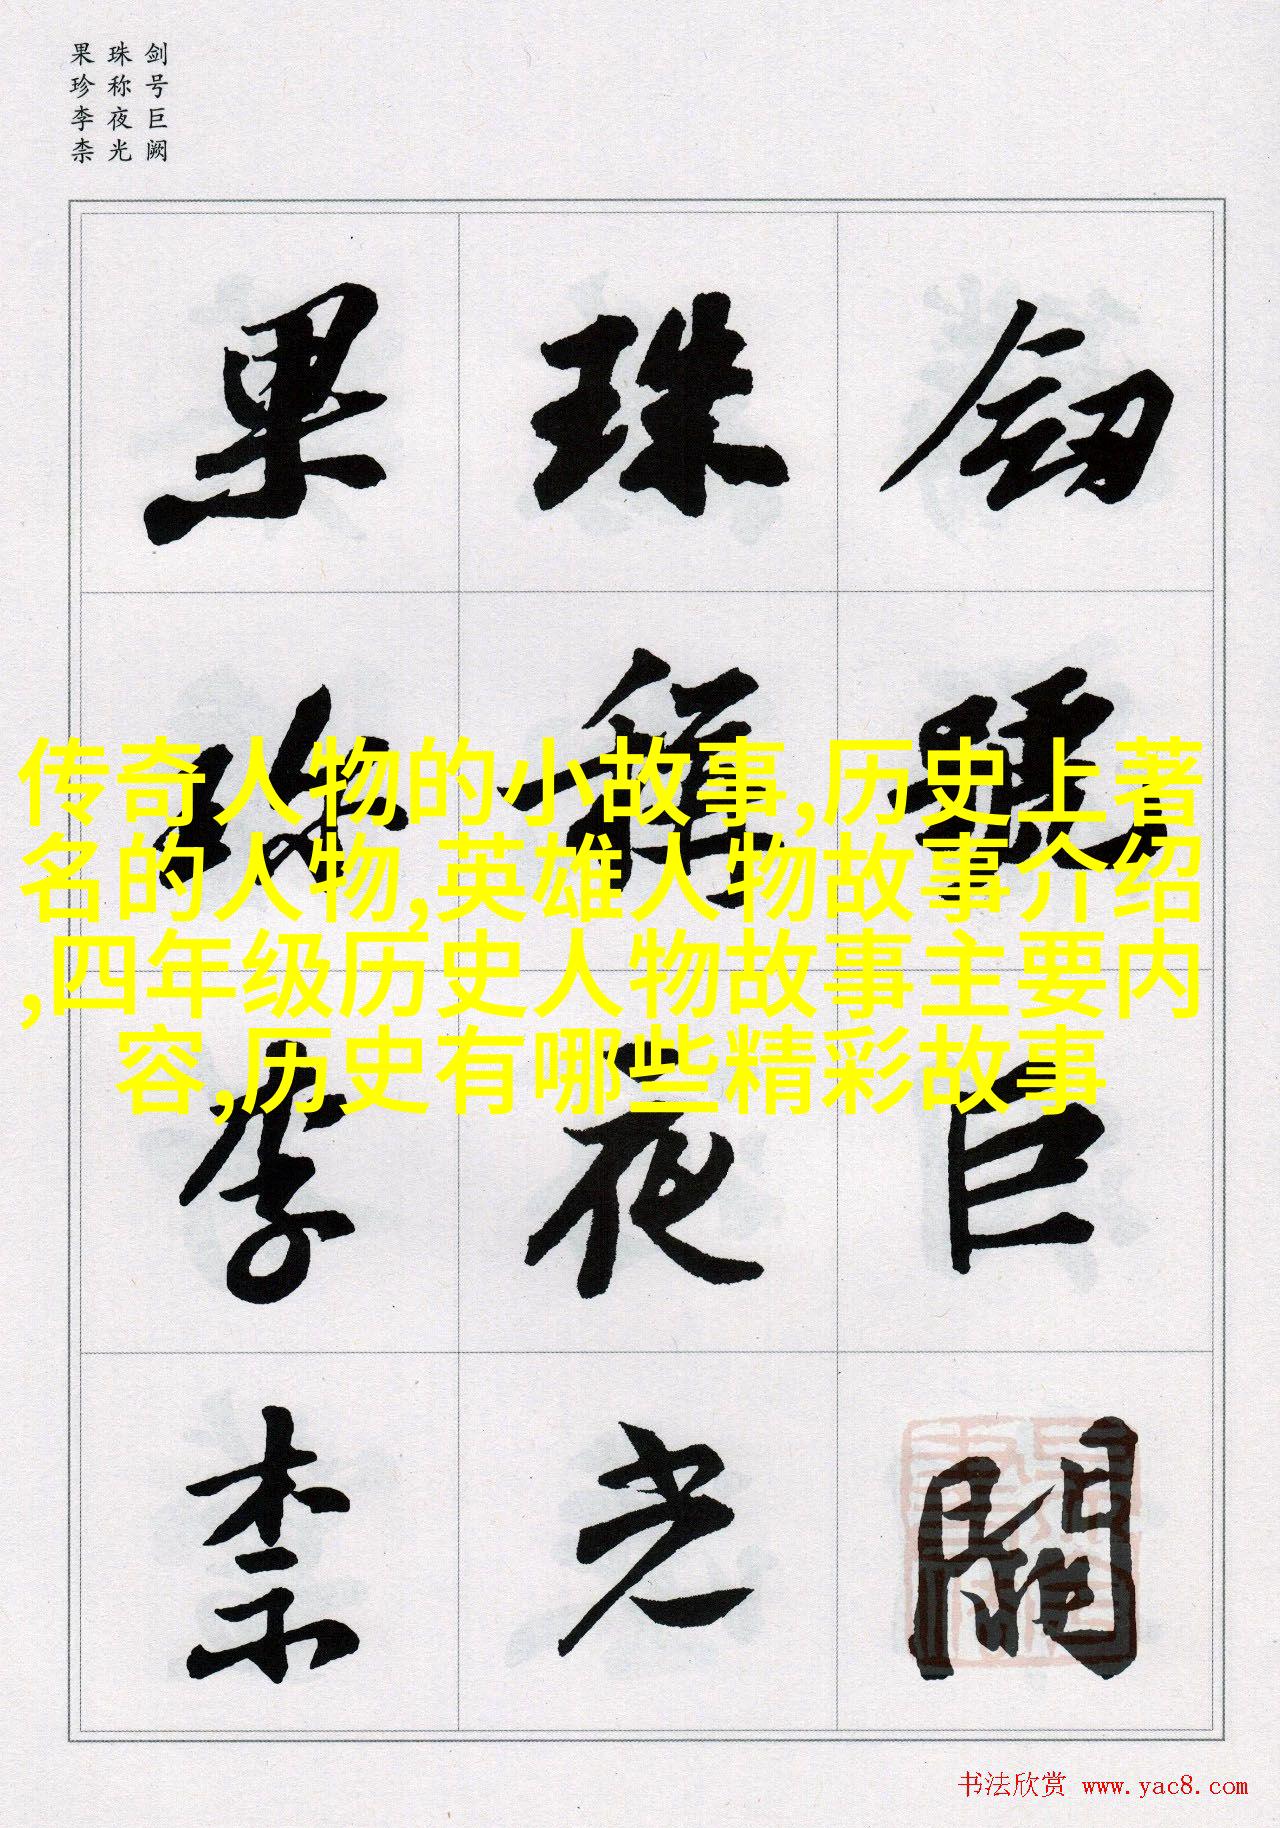 剑号巨阙
珠称夜光
果珍李柰
劒號巨闕
珠稱夜光
果珍李柰
传奇人物的小故事,历史上著
名的人物,英雄人物故事介绍
,四年级历史人物故事主要内
容,历史有哪些精彩故事
书法欣赏 www.yac8.com